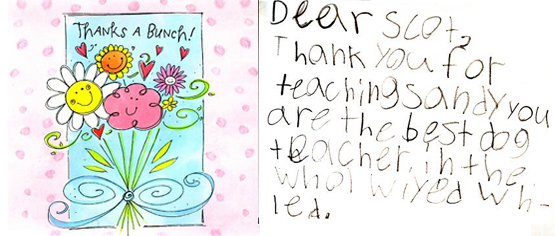 THANKS A BUNCH!
Dear Scot,
Thank you for
teaching sandy you
are the best dog
teacher. in the
whol wiyed wh-
led.